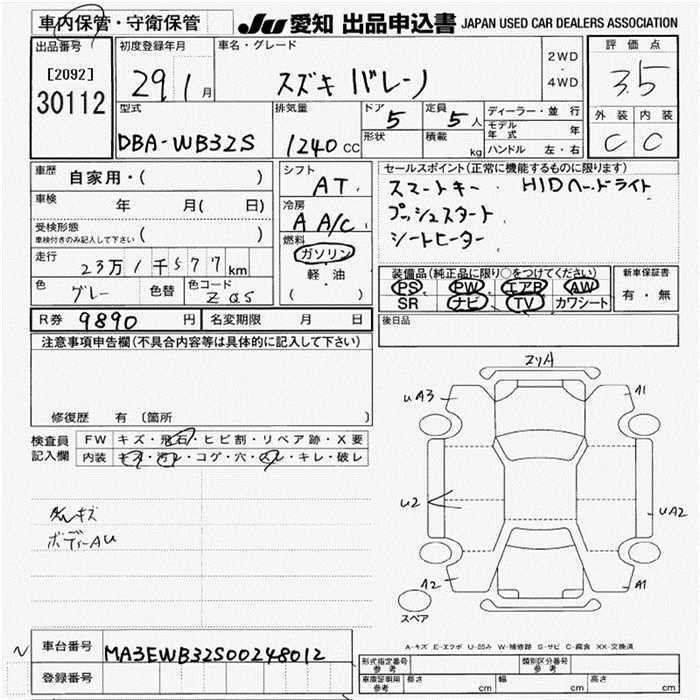 車内保管・守衛保管
JU 愛知 出品申込書 JAPAN USED CAR DEALERS ASSOCIATION
出品番号
[2092]
30112
初度登録年月
29 1 月
車名・グレード
スズキ バレーノ
2WD
・
4WD
評価点
3.5
外装 内装
C C
型式
DBA-WB32S
排気量
1240 CC
ドア
5
形状
定員
5 人
積載
kg
ディーラー・並行
モデル年式 年
ハンドル 左・右
車歴
自家用・( )
車検
年 月( 日)
受検形態
車検付きのみ記入して下さい ( )
走行
23万1千577km
色
グレー
色替
色コード
ZQS
シフト
AT
冷房
A A/C
燃料
ガソリン
軽・油
( )
セールスポイント(正常に機能するものに限ります)
スマートキー HIDヘッドライト
プッシュスタート
シートヒーター
装備品(純正品に限り○をつけてください)
PS PW エアB AW
SR ナビ TV カワシート
新車保証書
有・無
R券 9890 円
名変期限 月 日
後日品
注意事項申告欄(不具合内容等は具体的に記入して下さい)
修復歴 有 〔箇所
検査員
記入欄
FW キズ・飛石・ヒビ割・リペア跡・X要
内装 キズ・汚レ・コゲ・穴・スレ・キレ・破レ
キズ
ボディーAU
uA3
A1
U2
UA2
A2
A1
スペア
A-キズ E-エクボ U-凹み W-補修跡 S-サビ C-腐食 XX-交換済
車台番号
MA3EWB32S00248012
登録番号
形式指定番号
参考
類別区分番号
参考
車庫証明用
参考
長さ cm
幅 cm
高さ cm